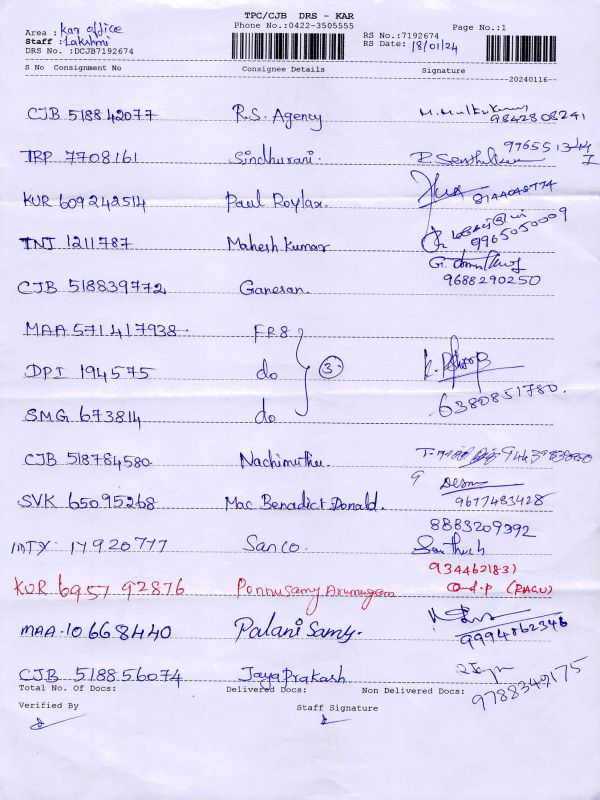 TPC/CJB DRS - KAR
Phone No.:0422-3505555 Page No.:1
Area : Kar office RS No.:7192674
Staff : Lakshmi RS Date: 18/01/24
DRS No. :DCJB7192674
S No Consignment No Consignee Details Signature
20240116--
CJB 518842077 R.S. Agency M. Muthukumar 9842808241
TRP 7708161 Sindhurani. P. Senthil
KUR 609242514 Paul Roylax.
TNJ 1211787 Mahesh Kumar 9965050009
CJB 518839772 Ganesan. G. 9688290250
MAA 571417938 FR8
DPI 194575 do 3
SMG 673814 do 6380851780.
CJB 518784580 Nachimuthu.
SVK 65095268 Mac Benadict Donald. 9677483428
8883209392
MTY 17920777 Sanco. Santhosh
934462183)
KUR 6957 92876 Ponnusamy Arumugam O-d-p (RAGU)
MAA 10668440 Palani Samy. 9994862346
CJB 518856074 JayaPrakash 9788349175
Total No. Of Docs: Delivered Docs: Non Delivered Docs:
Verified By Staff Signature